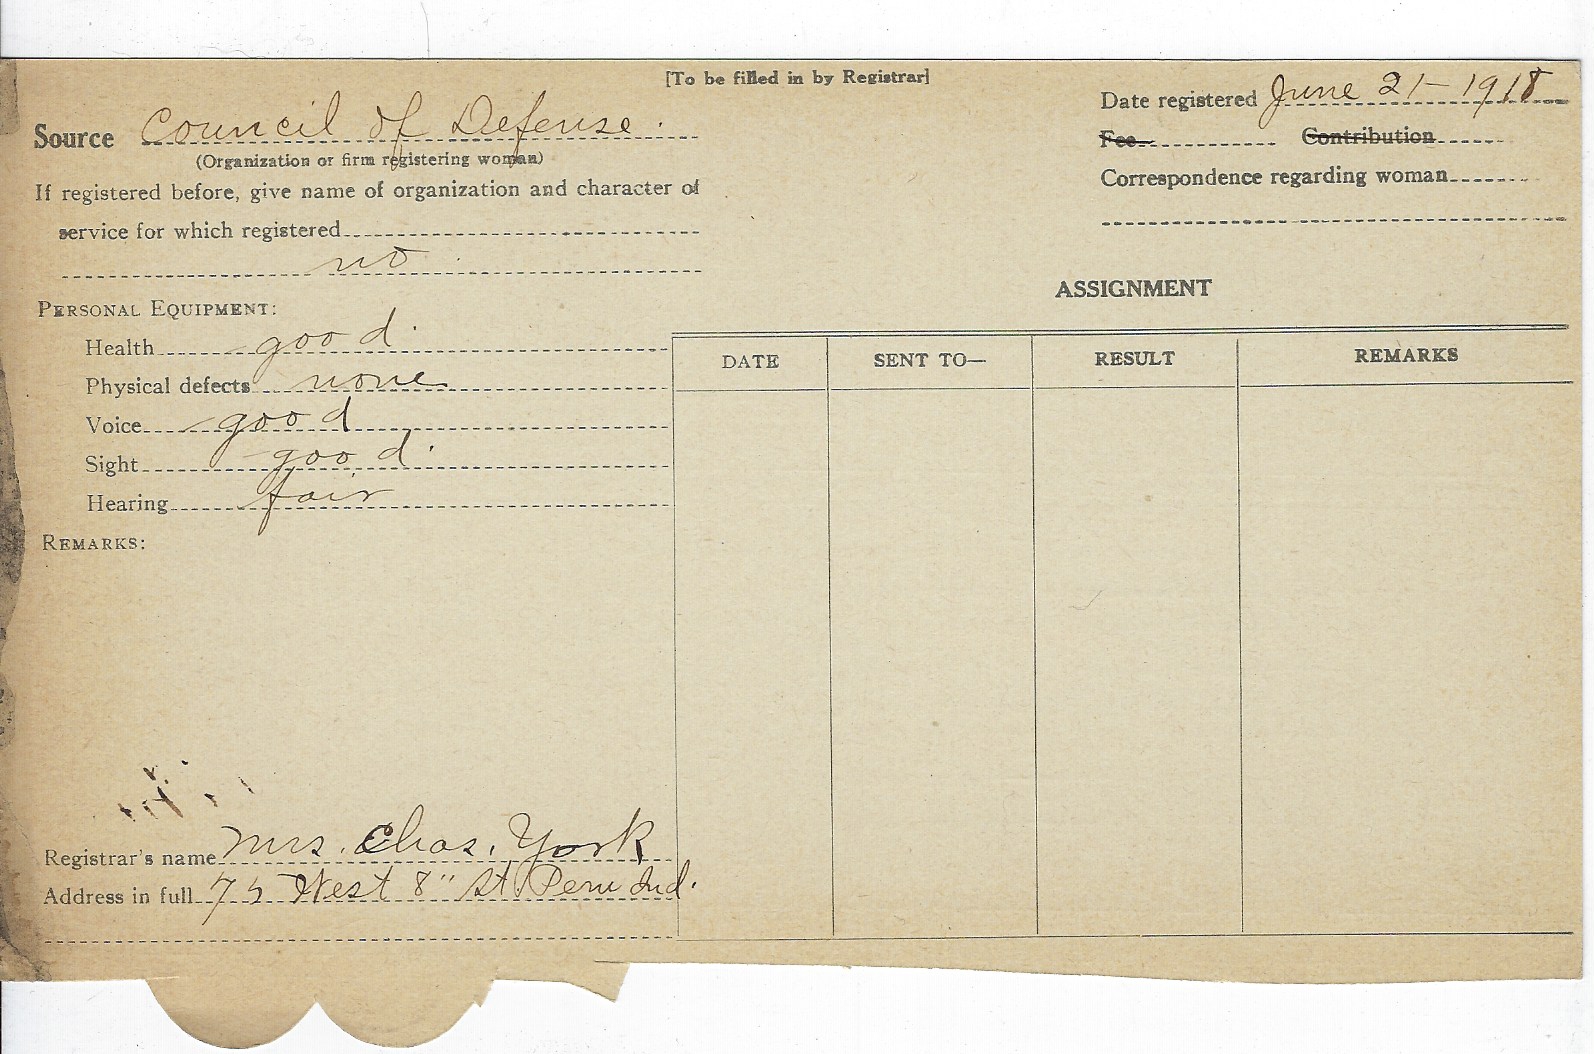 [To be filled in by Registrar]
Source Council of Defense.
(Organization or firm registering woman)
If registered before, give name of organization and character of
service for which registered
no
PERSONAL EQUIPMENT:
Health good.
Physical defects none
Voice good
Sight good.
Hearing fair
REMARKS:
Registrar's name Mrs. Chas. York
Address in full 75 West 8" St. Peru Ind.
Date registered June 21-1918
Fee Contribution
Correspondence regarding woman
ASSIGNMENT
DATE SENT TO— RESULT REMARKS